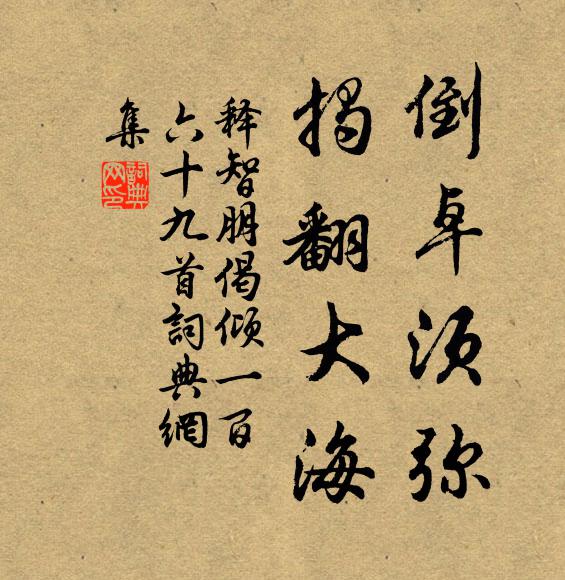 倒卓须弥
揭翻大海
释智朋偈倾一百
六十九首詞典網
集
詞典网印